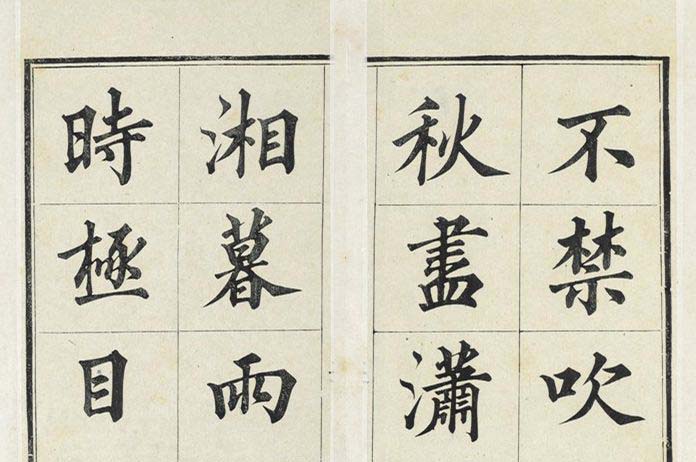 不禁吹
秋盡瀟
湘暮雨
時極目